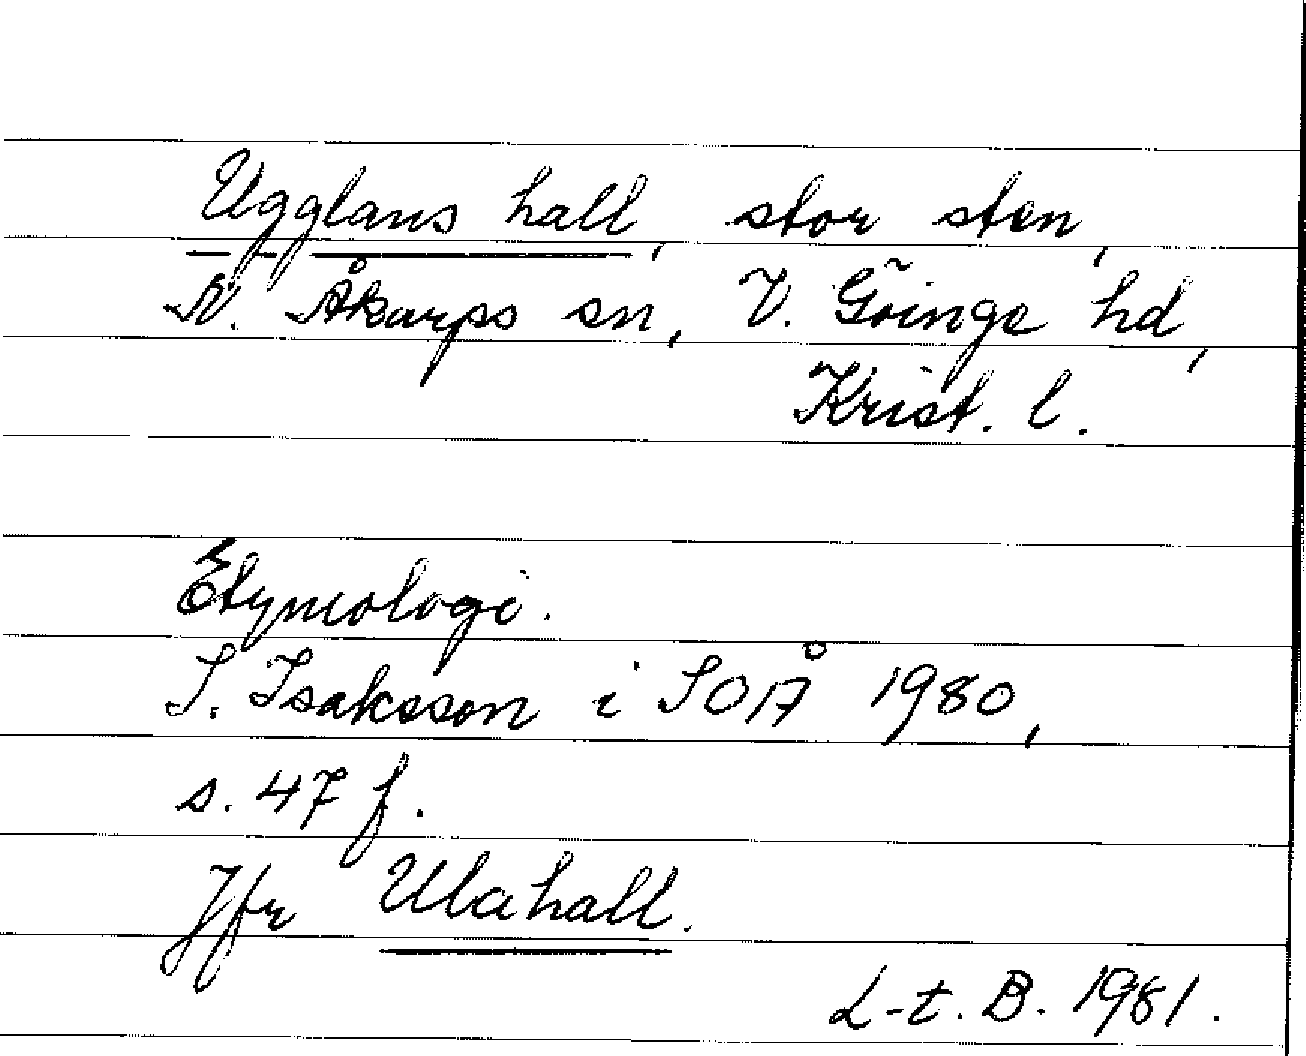 Ugglans hall, stor sten,
N. Åkarps sn, V. Göinge hd,
Krist. l.
Etymologi.
S. Isaksson i SOÅ 1980,
s. 47 f.
Jfr Ulahall.
L-t. B. 1981.